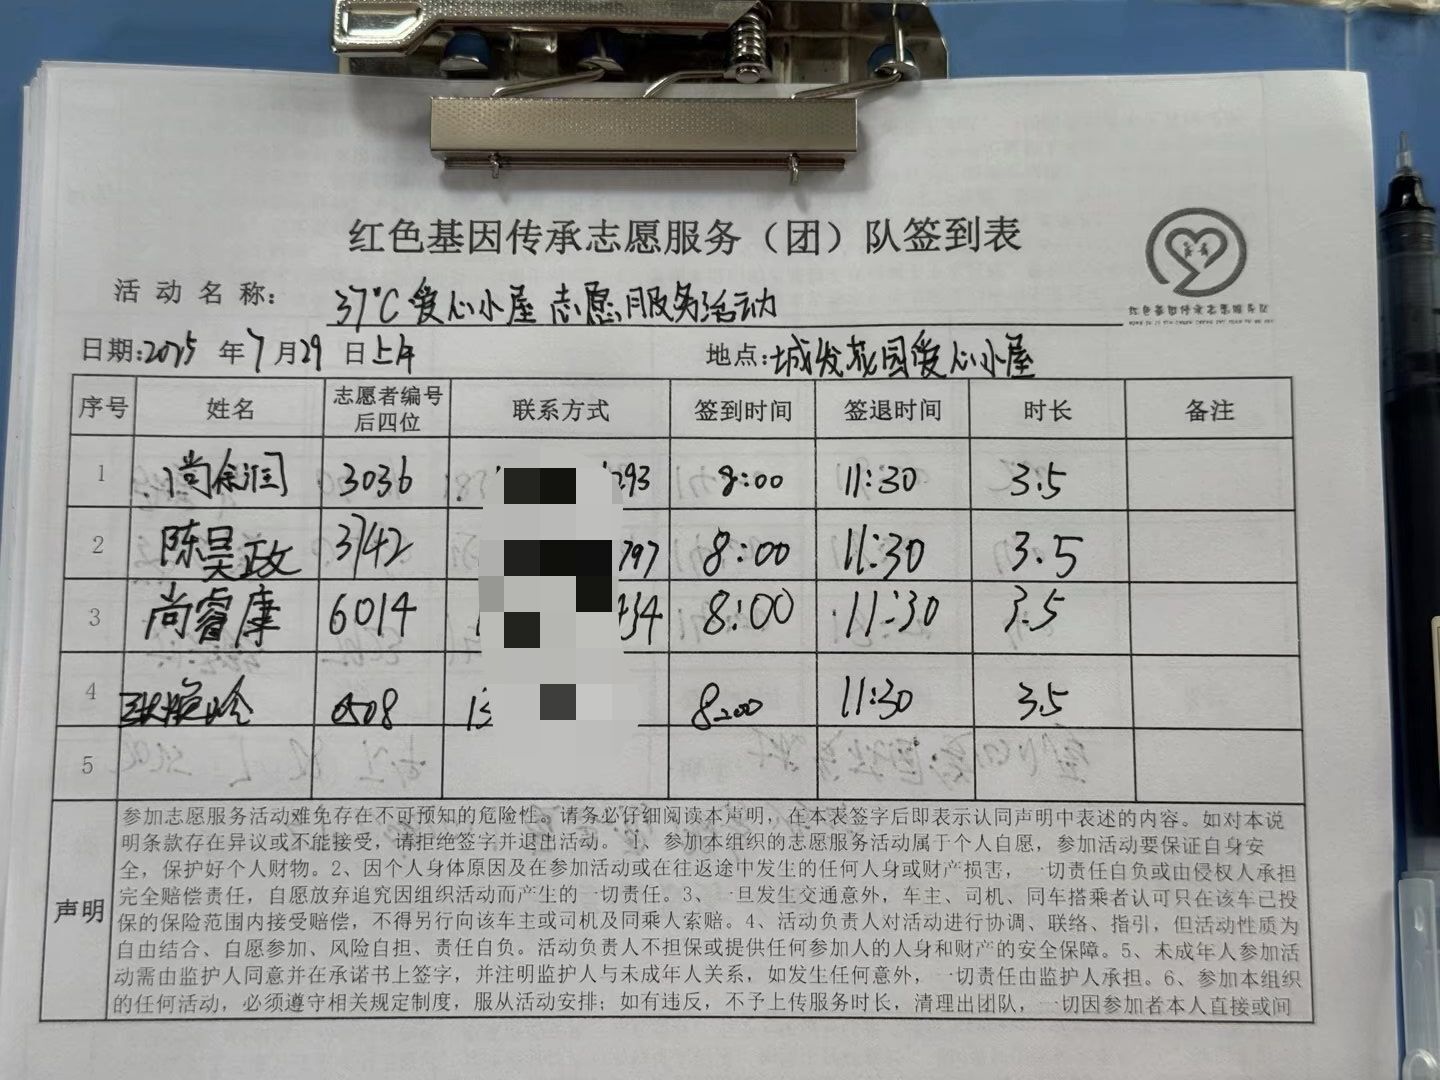 红色基因传承志愿服务（团）队签到表
活动名称：37°C爱心小屋志愿服务活动
日期：2025年7月29日上午 地点：城发花园爱心小屋
序号 姓名 志愿者编号后四位 联系方式 签到时间 签退时间 时长 备注
1 尚余润 3036 293 8:00 11:30 3.5
2 陈昊政 3742 797 8:00 11:30 3.5
3 尚睿康 6014 434 8:00 11:30 3.5
4 0508 13 8:00 11:30 3.5
5
声明
参加志愿服务活动难免存在不可预知的危险性。请务必仔细阅读本声明，在本表签字后即表示认同声明中表述的内容。如对本说
明条款存在异议或不能接受，请拒绝签字并退出活动。 1、参加本组织的志愿服务活动属于个人自愿，参加活动要保证自身安
全，保护好个人财物。2、因个人身体原因及在参加活动或在往返途中发生的任何人身或财产损害，一切责任自负或由侵权人承担
完全赔偿责任，自愿放弃追究因组织活动而产生的一切责任。3、一旦发生交通意外，车主、司机、同车搭乘者认可只在该车已投
保的保险范围内接受赔偿，不得另行向该车主或司机及同乘人索赔。4、活动负责人对活动进行协调、联络、指引，但活动性质为
自由结合、自愿参加、风险自担、责任自负。活动负责人不担保或提供任何参加人的人身和财产的安全保障。5、未成年人参加活
动需由监护人同意并在承诺书上签字，并注明监护人与未成年人关系，如发生任何意外，一切责任由监护人承担。6、参加本组织
的任何活动，必须遵守相关规定制度，服从活动安排；如有违反，不予上传服务时长，清理出团队，一切因参加者本人直接或间